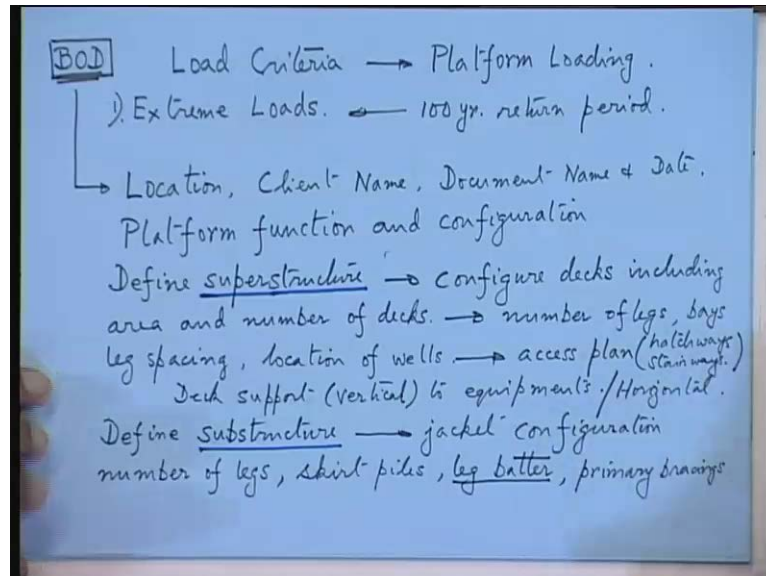 BOD Load Criteria → Platform Loading.
1). Extreme Loads. ← 100 yr. return period.
→ Location, Client Name, Document Name & Date.
Platform function and configuration
Define superstructure → configure decks including
area and number of decks. → number of legs, bays
leg spacing, location of wells → access plan (hatchways
stairways.)
Deck support (vertical) to equipments./Horizontal.
Define substructure → jacket configuration
number of legs, skirt piles, leg batter, primary bracings